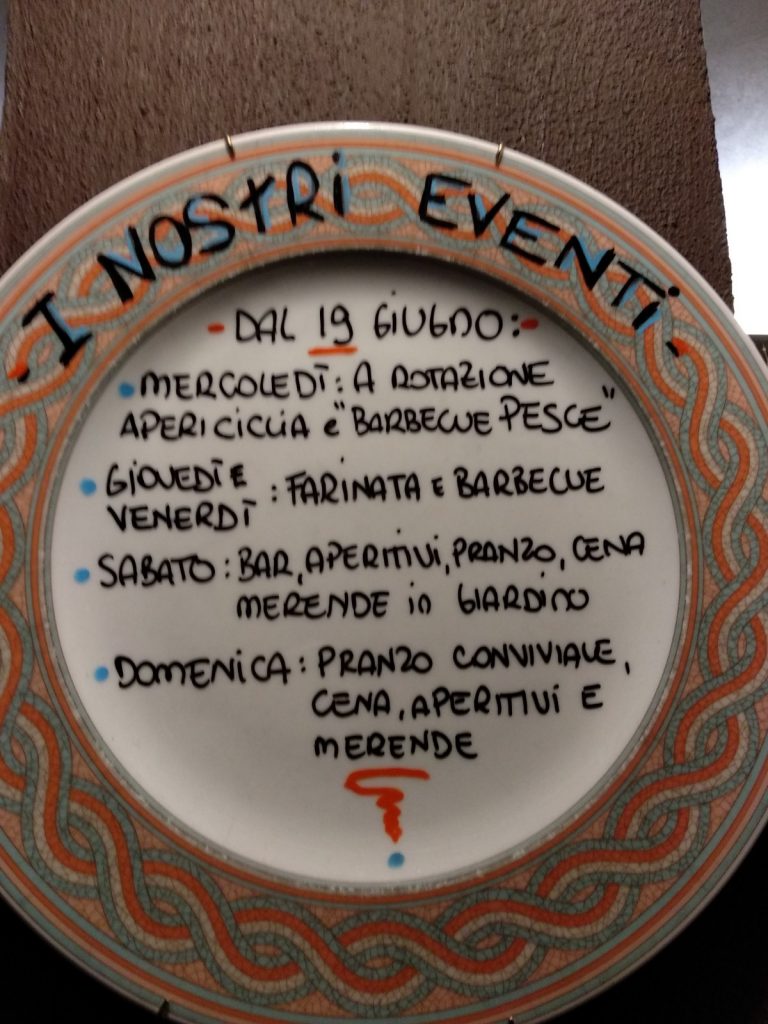 - I NOSTRI EVENTI -
- DAL 19 GIUGNO: -
• MERCOLEDÌ: A ROTAZIONE
APERICICLIA e "BARBECUE PESCE"
• GIOVEDÌ E : FARINATA E BARBECUE
VENERDÌ
• SABATO: BAR, APERITIVI, PRANZO, CENA
MERENDE in GIARDINO
• DOMENICA: PRANZO CONVIVIALE,
CENA, APERITIVI E
MERENDE